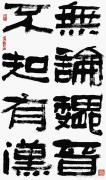 無論魏晉
不知有漢